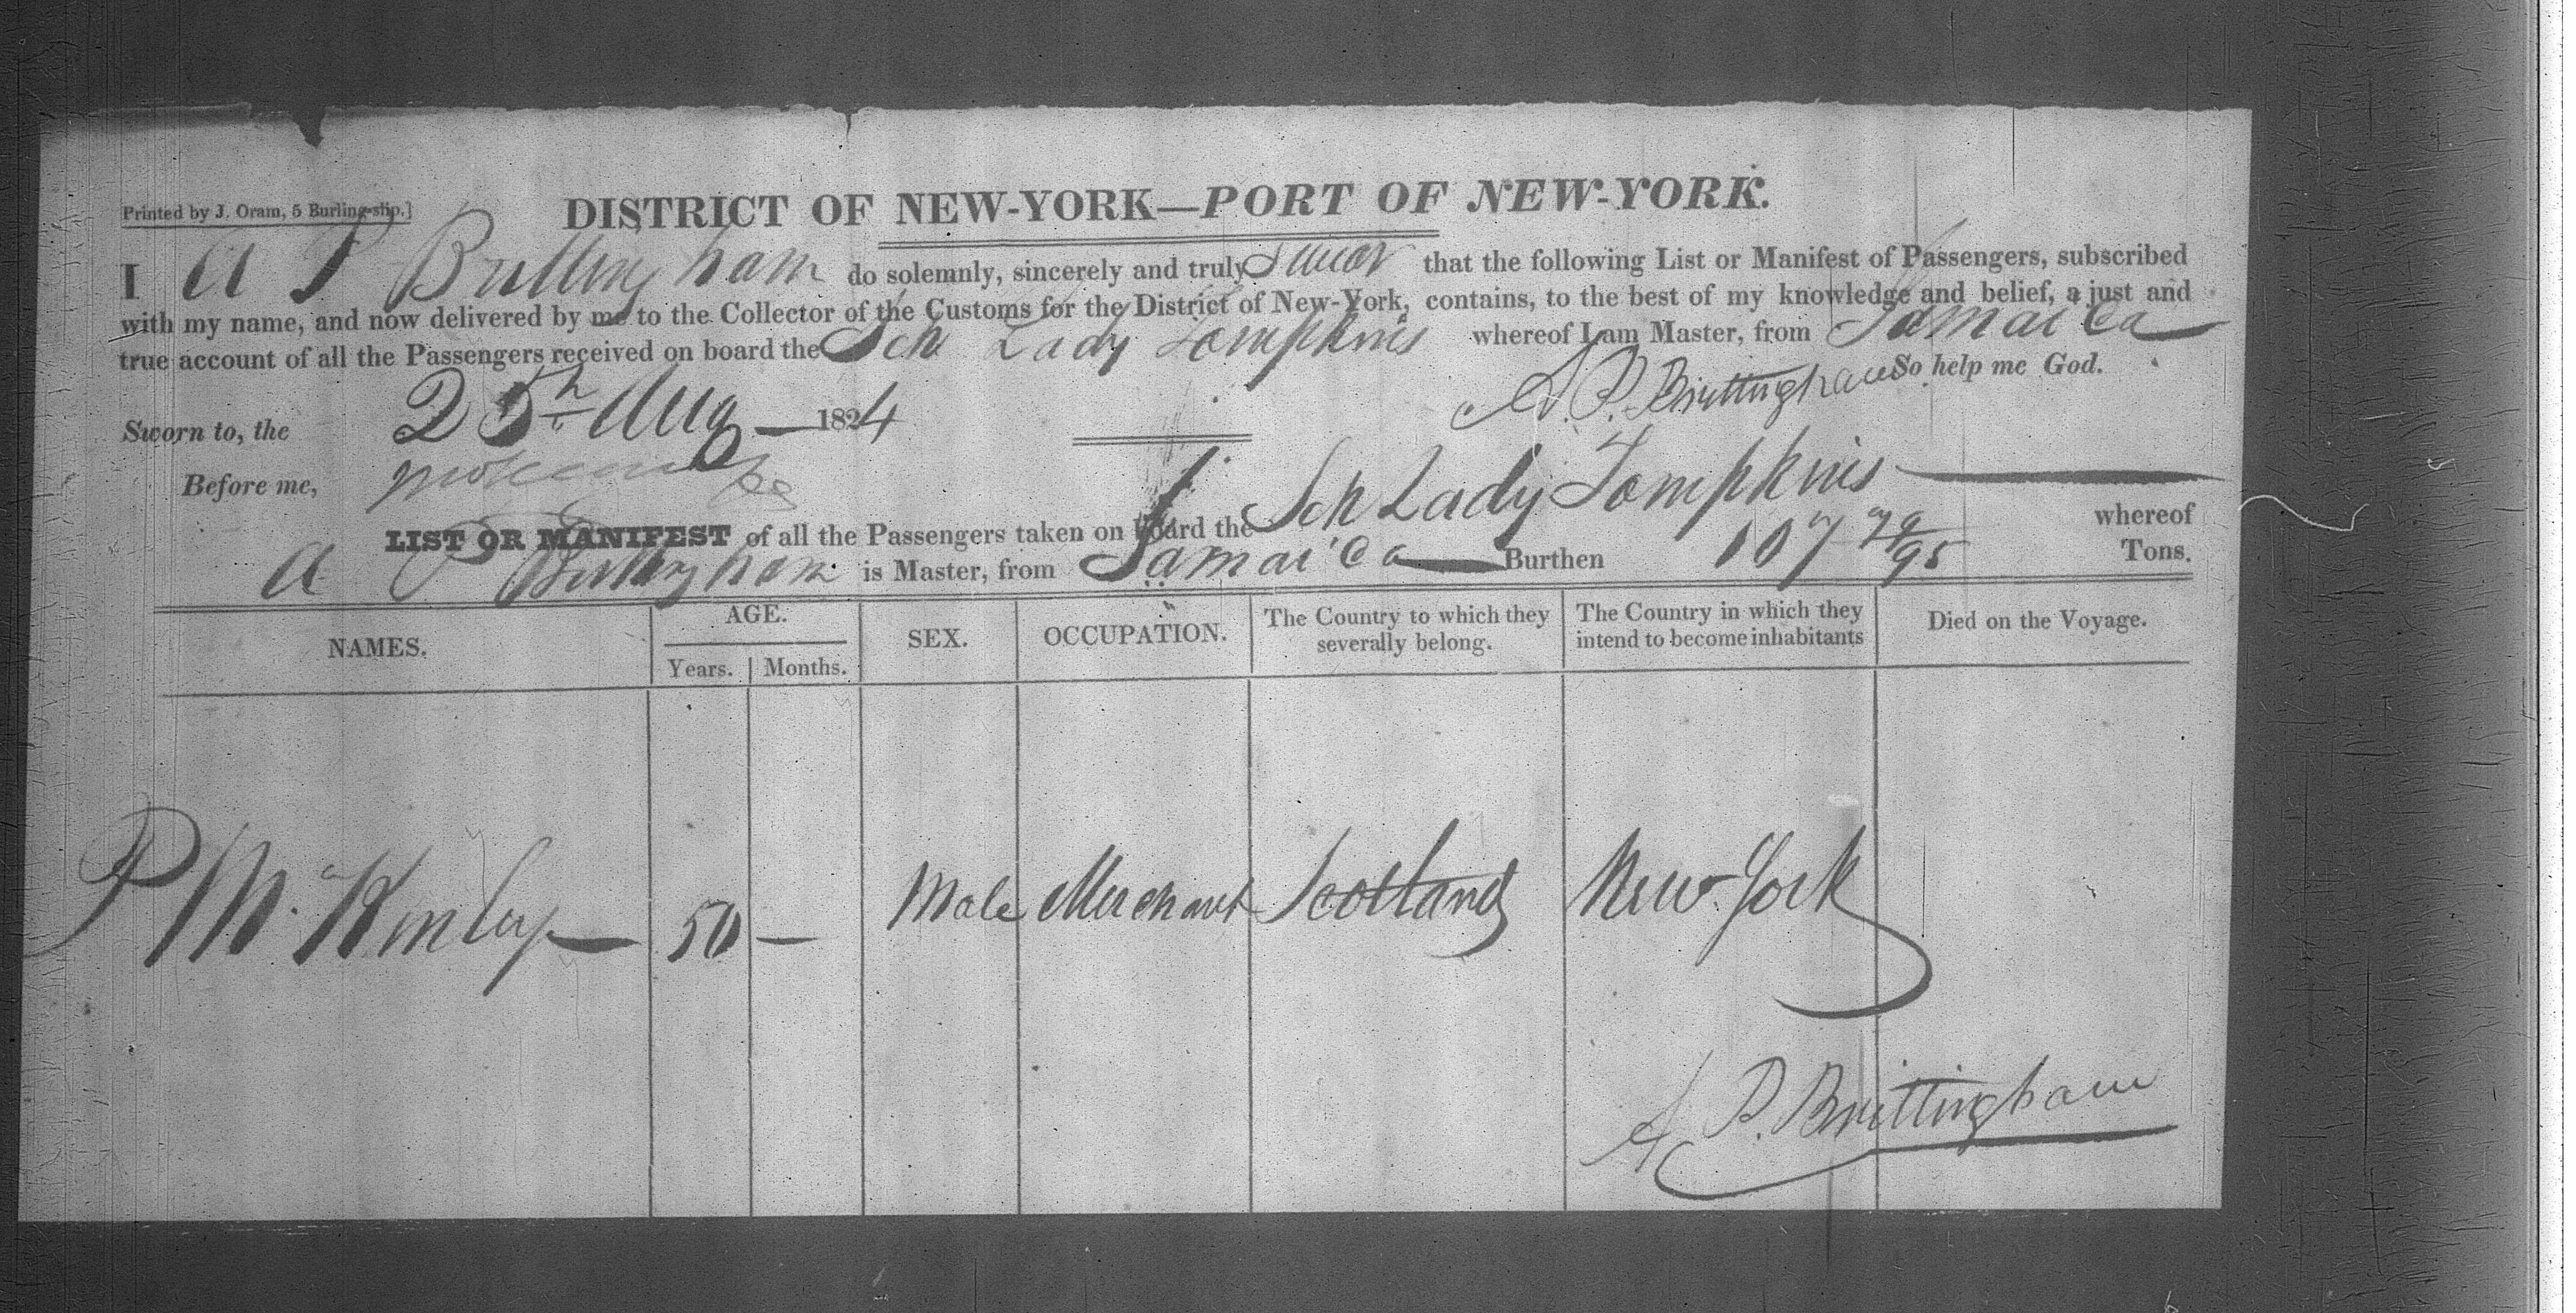 DISTRICT OF NEW-YORK—PORT OF NEW-YORK.
Printed by J. Oram, 5 Burling-slip.]
I A P Brittingham do solemnly, sincerely and truly swear that the following List or Manifest of Passengers, subscribed
with my name, and now delivered by me to the Collector of the Customs for the District of New-York, contains, to the best of my knowledge and belief, a just and
true account of all the Passengers received on board the Sch Lady Tompkins whereof I am Master, from Jamaica
So help me God.
A. P. Brittingham
Sworn to, the 25th Aug 1824
Before me,
LIST OR MANIFEST of all the Passengers taken on board the Sch Lady Tompkins whereof
A P Brittingham is Master, from Jamaica Burthen 107 Tons.
NAMES. AGE. SEX. OCCUPATION. The Country to which they severally belong. The Country in which they intend to become inhabitants Died on the Voyage.
Years. Months.
P McKinley 50 — Male Merchant Scotland New York
A P. Brittingham